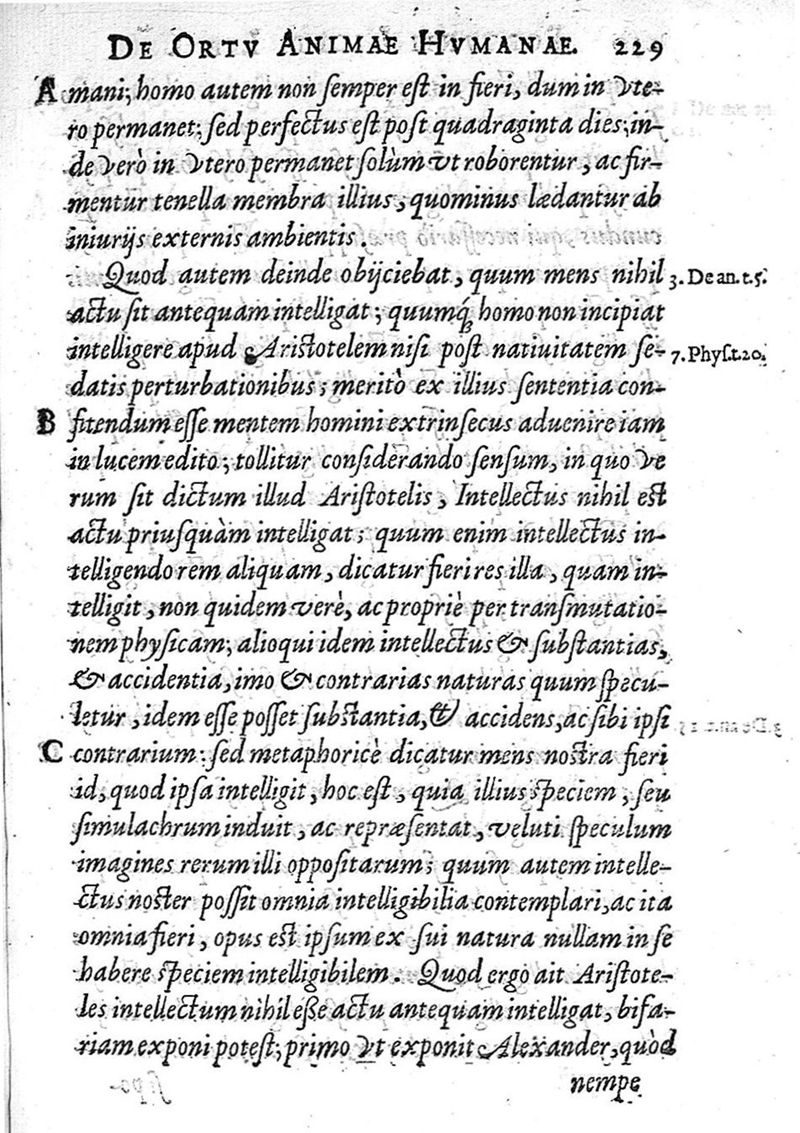 DE ORTV ANIMAE HVMANAE. 229
A mani; homo autem non semper est in fieri, dum in vte-
ro permanet; sed perfectus est post quadraginta dies; in-
de verò in vtero permanet solùm vt roborentur, ac fir-
mentur tenella membra illius, quominus lædantur ab
iniurijs externis ambientis.
Quod autem deinde obijciebat, quum mens nihil 3. De an. t. 5.
actu sit antequam intelligat; quumq́; homo non incipiat
intelligere apud Aristotelem nisi post natiuitatem se- 7. Phys. t. 20.
datis perturbationibus; meritò ex illius sententia con-
B fitendum esse mentem homini extrinsecus aduenire iam
in lucem edito; tollitur considerando sensum, in quo ve
rum sit dictum illud Aristotelis, Intellectus nihil est
actu priusquàm intelligat; quum enim intellectus in-
telligendo rem aliquam, dicatur fieri res illa, quam in-
telligit, non quidem verè, ac propriè per transmutatio-
nem physicam; alioqui idem intellectus & substantias,
& accidentia, imo & contrarias naturas quum specu-
letur, idem esse posset substantia, & accidens, ac sibi ipsi
C contrarium: sed metaphoricè dicatur mens nostra fieri
id, quod ipsa intelligit, hoc est, quia illius speciem, seu
simulachrum induit, ac repræsentat, veluti speculum
imagines rerum illi oppositarum; quum autem intelle-
ctus noster possit omnia intelligibilia contemplari, ac ita
omnia fieri, opus est ipsum ex sui natura nullam in se
habere speciem intelligibilem. Quod ergo ait Aristote-
les intellectum nihil esse actu antequam intelligat, bifa-
riam exponi potest; primo vt exponit Alexander, quòd
nempe